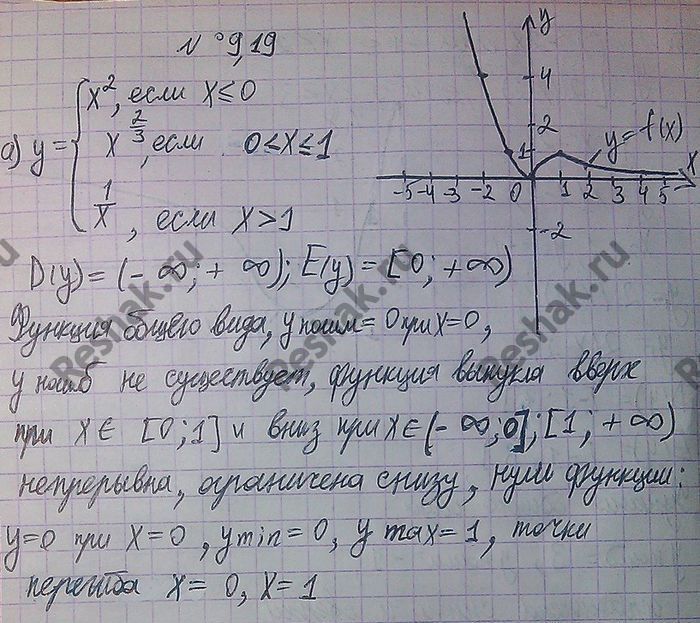 N°9,19
x², если x ≤ 0
а) y = { x^(2/3), если 0 < x ≤ 1
1/x, если x > 1
y
4
2
1
y = f(x)
x
-5 -4 -3 -2 0 1 2 3 4 5
-2
D(y) = (-∞; +∞); E(y) = [0; +∞)
Функция общего вида, y наим = 0 при x = 0,
y наиб не существует, функция выпукла вверх
при x ∈ [0; 1] и вниз при x ∈ (-∞; 0]; [1; +∞)
непрерывна, ограничена снизу, нули функции:
y = 0 при x = 0, y min = 0, y max = 1, точки
перегиба x = 0, x = 1
Reshak.ru
Reshak.ru
Reshak.ru
ru